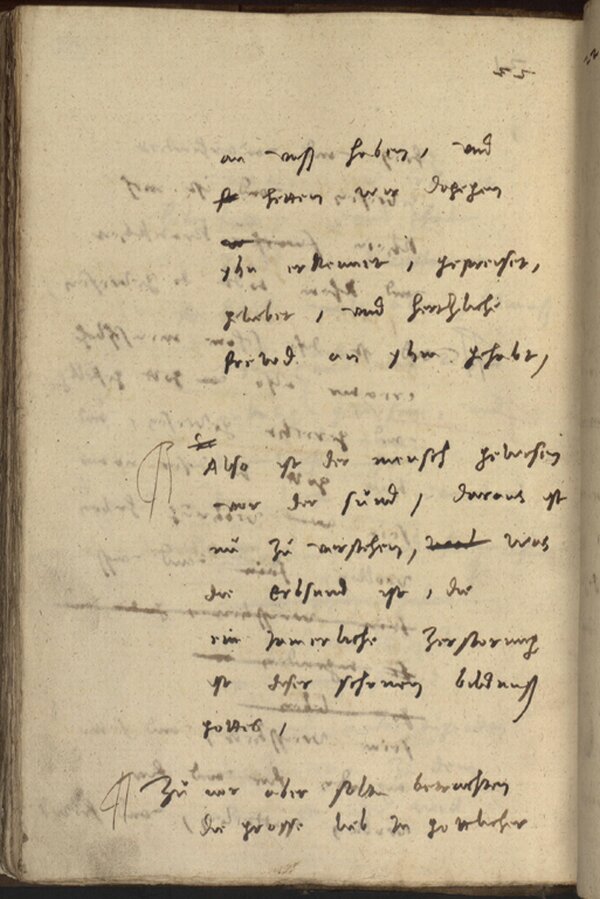 an unß haben, und
hetten wir dagegen
yhn erkennet, gepreiset,
geliebet, und hertzliche
freud an yhm gehabt,
Also ist der mensch gewesen
vor der sünd, daraus ist
nü zü verstehen, was
die Erbsund ist, die
ein Jamerliche Zerstorung
ist diser schonen bildnuß
gottes,
Zü vor aber solten betrachten
die grosse lieb in gottlicher